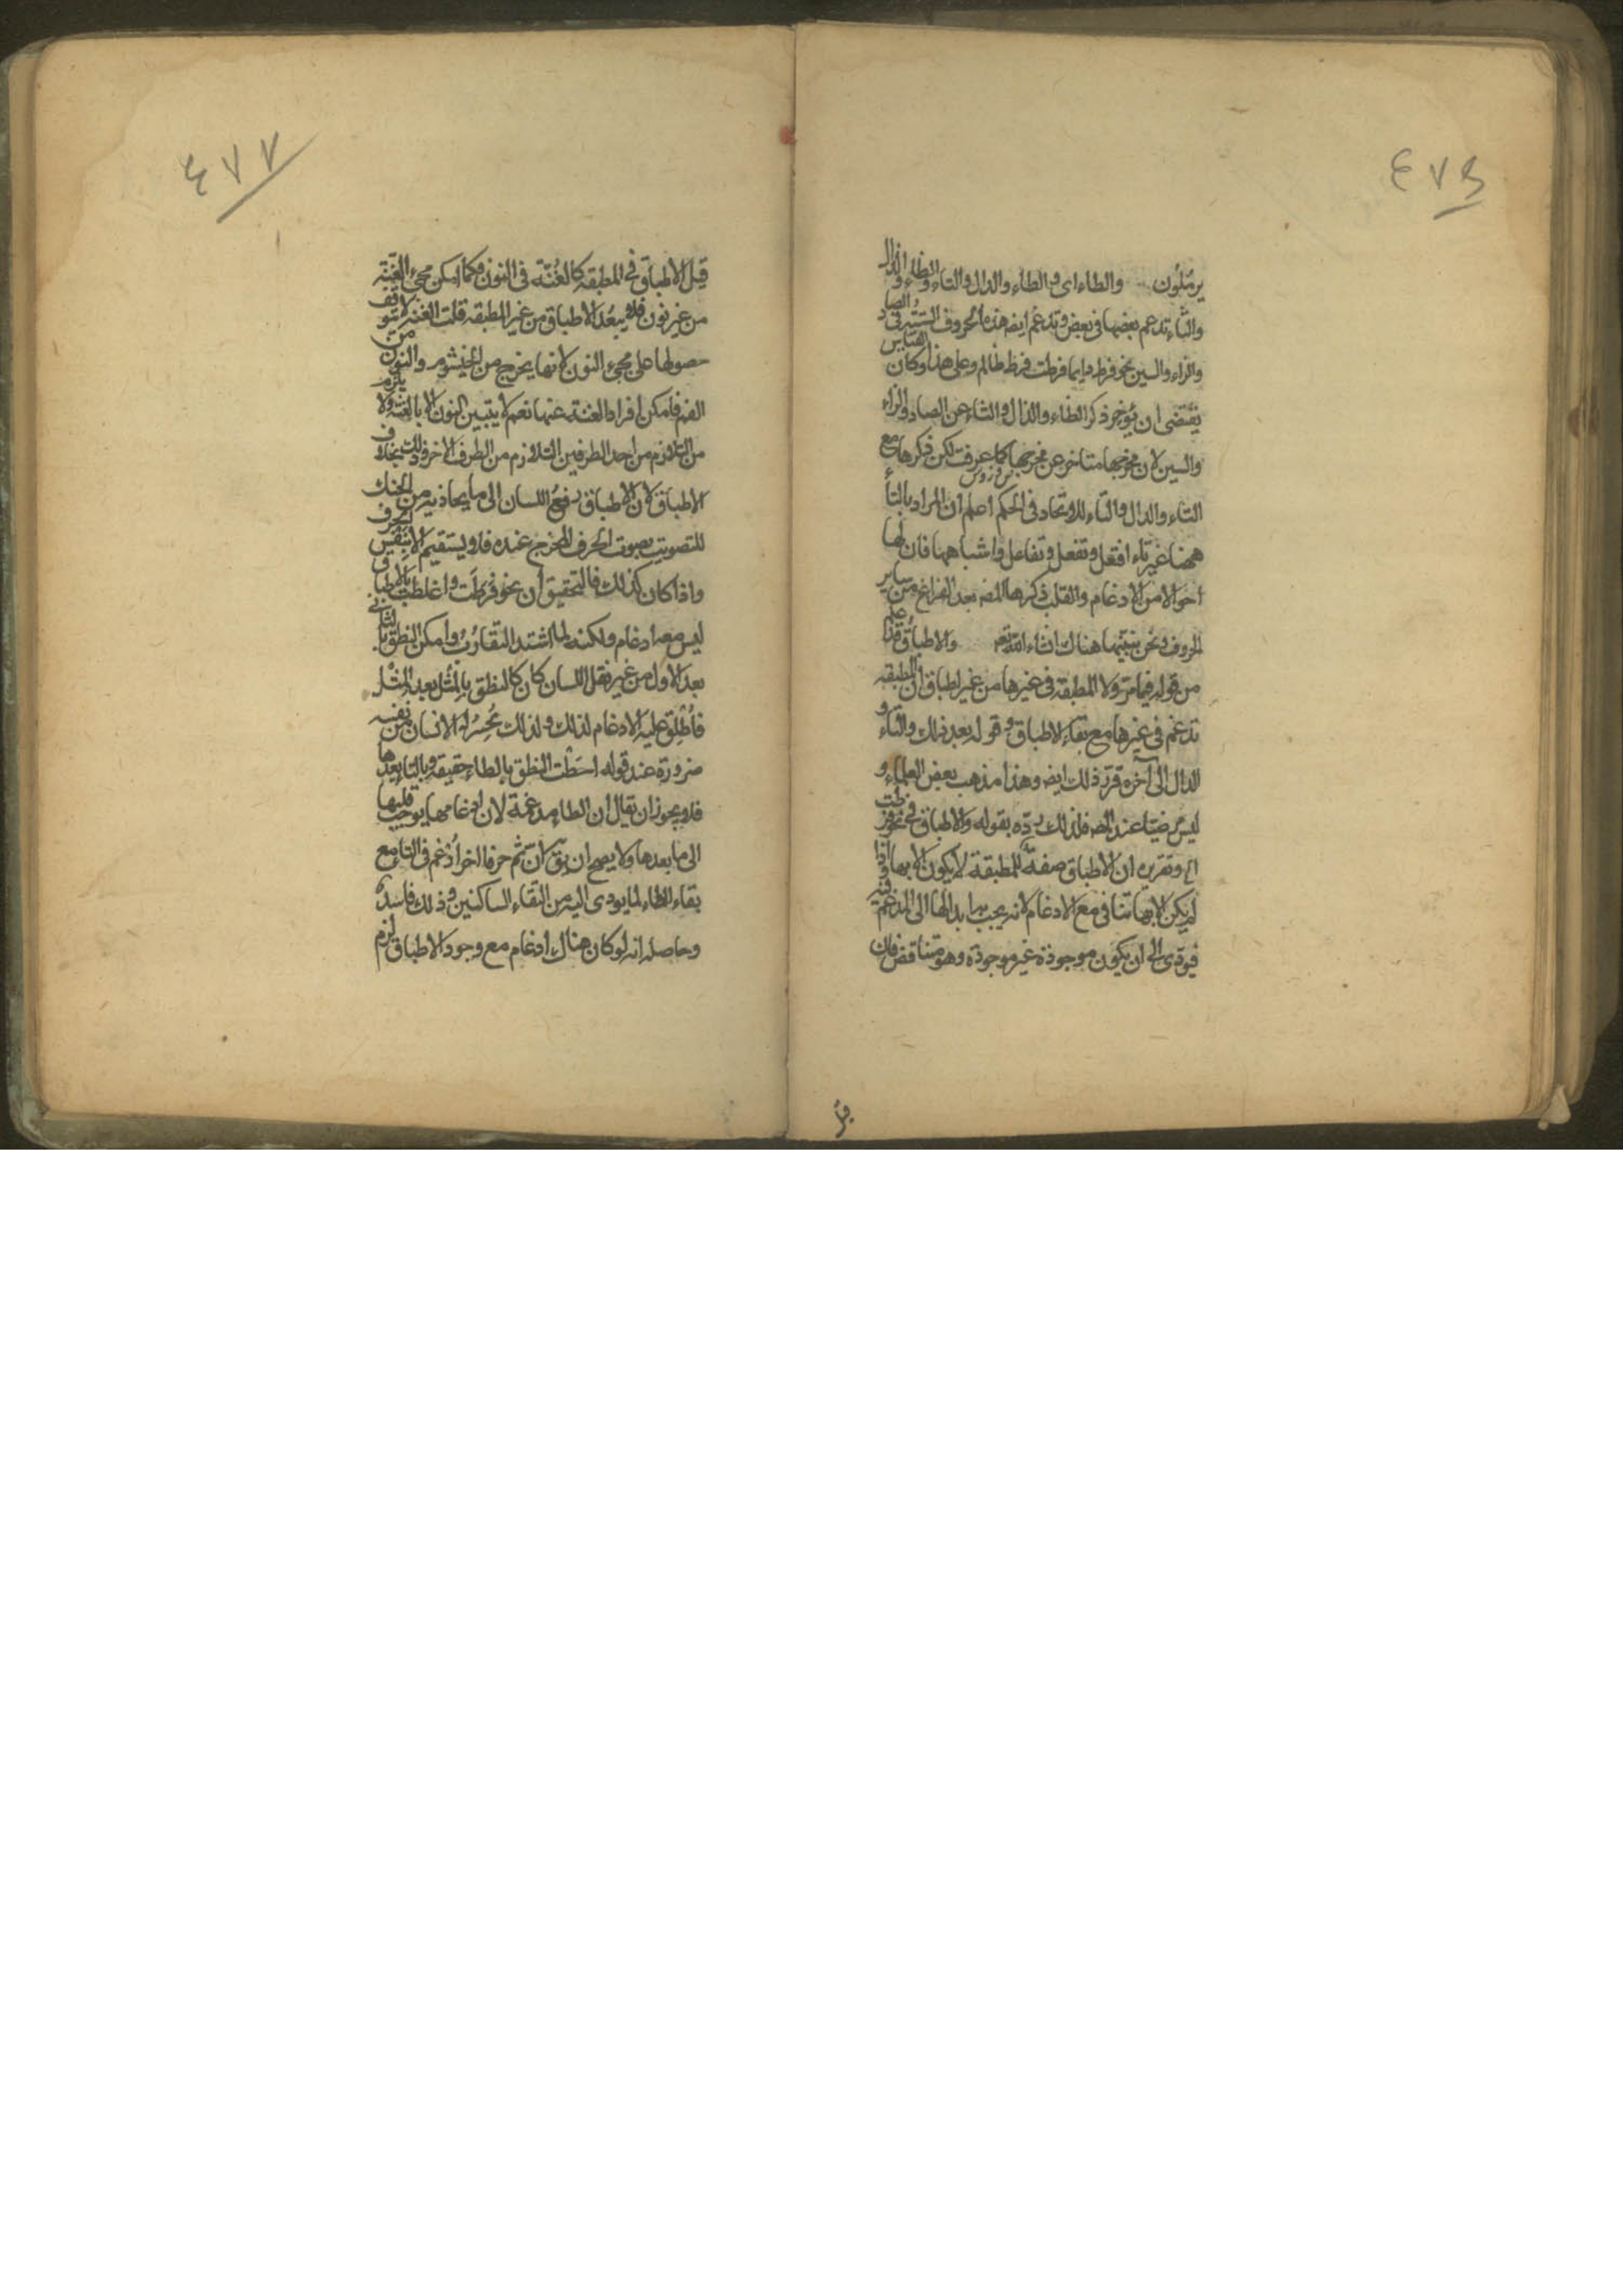 ٤٧٦
يرملون والطاء اى و الطاء والدال والتاء والظاء والذال
والثاء تدغم بعضها فى بعض وتدغم ايضه هذه الحروف الستة فى الصاد
والزاء والسين نحو فرط دايما فرطت فرظ ظالم وعلى هذا القياس وكان
يقتضى ان يؤخر ذكر الظاء والذال والثاء عن الصاد والزاء
والسين لان مخرجها متاخر عن مخرجها كما عرفت لكن ذكرها مع
التاء والدال والتاء للاتحاد فى الحكم اعلم ان المراد بالتاء
ههنا غير تاء افتعل وتفعل وتفاعل واشباهها فان لها
احوالا من الادغام والقلب ذكرها المصه بعد الفراغ من ساير
الحروف ونحن نبينها هناك ان شاء الله تعه والاطباق قد علم
من قوله فيما مر ولا المطبقة فى غيرها من غير اطباق ان المطبقه
تدغم فى غيرها مع بقاء الاطباق و قوله بعد ذلك والتاء و
الدال الى آخره قرر ذلك ايضه وهذا مذهب بعض العلماء و
ليس مرضيا عند المصه فلذلك رده بقوله والاطباق فى نحو فرطت
اه وتقريره ان الاطباق صفة للمطبقة لا يكون الا بها واذا
لم يكن الا بها تنافى مع الادغام لانه يجب بدا بدالها الى المدغم فيه
فيؤدى الى ان يكون موجودة غير موجودة وهو متناقض فان
٤٧٧
قيل الاطباق فى المطبقه كالغنة فى النون فكما امكن مجئ الغنة
من غير نون فلا يبعد الاطباق من غير المطبقه قلت الغنه لا يتوقف
حصولها على مجئ النون لانها يخرج من الخيشوم والنون من
الفم فامكن افراد الغنة عنها نعم لا يتبين النون الا بالغنه ولا يلزم
من التلازم من احد الطرفين التلازم من الطرف الاخر وذلك بخلاف
الاطباق لان الاطباق رفع اللسان الى ما يحاذيه من الحنك
للتصويت بصوت الحرف المخرج عنده فلا يستقيم الا بنفس الحرف
واذا كان كذلك فالتحقيق ان نحو فرطت واغلظت بالاطباق
ليس معه ادغام ولكنه لما اشتد التقارب وامكن النطق بالثانى
بعد الاول من غير نقل اللسان كان كالنطق بالمثل بعد المثل
فاطلق عليه الادغام لذلك ولذلك يحس له الانسان من نفسه
ضرورة عند قوله احطت النطق بالطاء حقيقه وبالتاء بعدها
فلا يجوز ان يقال ان الطاء مدغمة لان ادغامها يوجب قلبها
الى ما بعدها ولا يصح ان يق ان ثم حرفا اخر ادغم فى التاء مع
بقاء الطاء لما يودى اليه من التقاء الساكنين وذلك فاسد
وحاصله انه لو كان هناك ادغام مع وجود الاطباق لزم